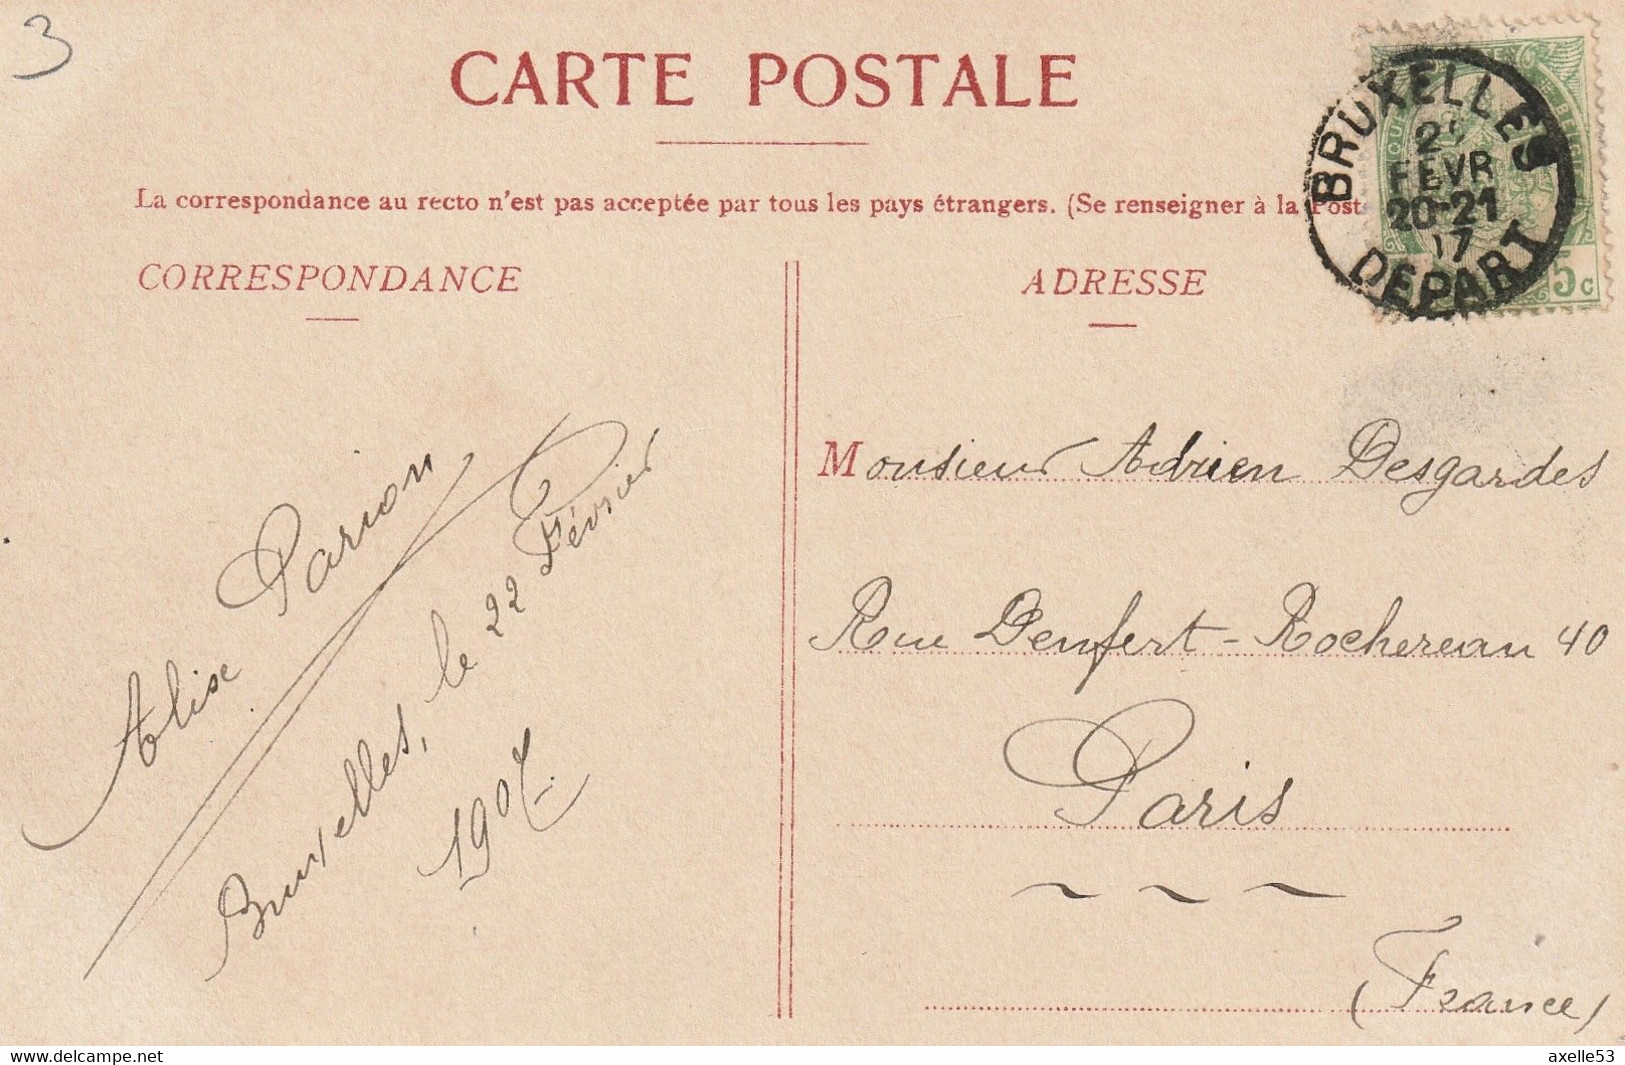 3
CARTE POSTALE
La correspondance au recto n'est pas acceptée par tous les pays étrangers. (Se renseigner à la Post
BRUXELLES
FEVR
20-21
DEPART
5c
CORRESPONDANCE
Alise Parion
Bruxelles, le 22 Février
1907.
ADRESSE
Monsieur Adrien Desgardes
Rue Denfert-Rochereau 40
Paris
~ ~ ~
(France)
delcampe.net
axelle53